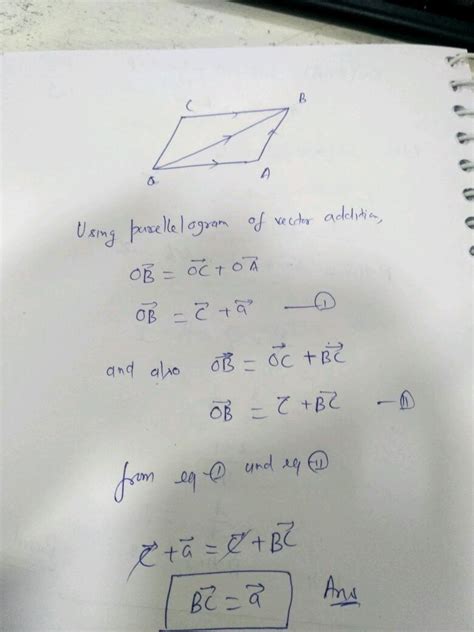 C B
O A
Using parallelogram of vector addition,
OB⃗ = OC⃗ + OA⃗
OB⃗ = c⃗ + a⃗ — (I)
and also OB⃗ = OC⃗ + BC⃗
OB⃗ = c⃗ + BC⃗ — (II)
from eq-(I) and eq-(II)
c⃗ + a⃗ = c⃗ + BC⃗
BC⃗ = a⃗ Ans